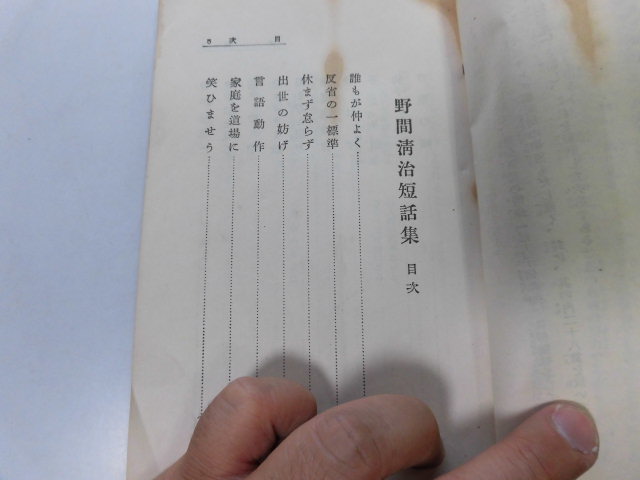 野間淸治短話集 目次
誰もが仲よく
反省の一標準
休まず怠らず
出世の妨げ
言語動作
家庭を道場に
笑ひませう
目次 5